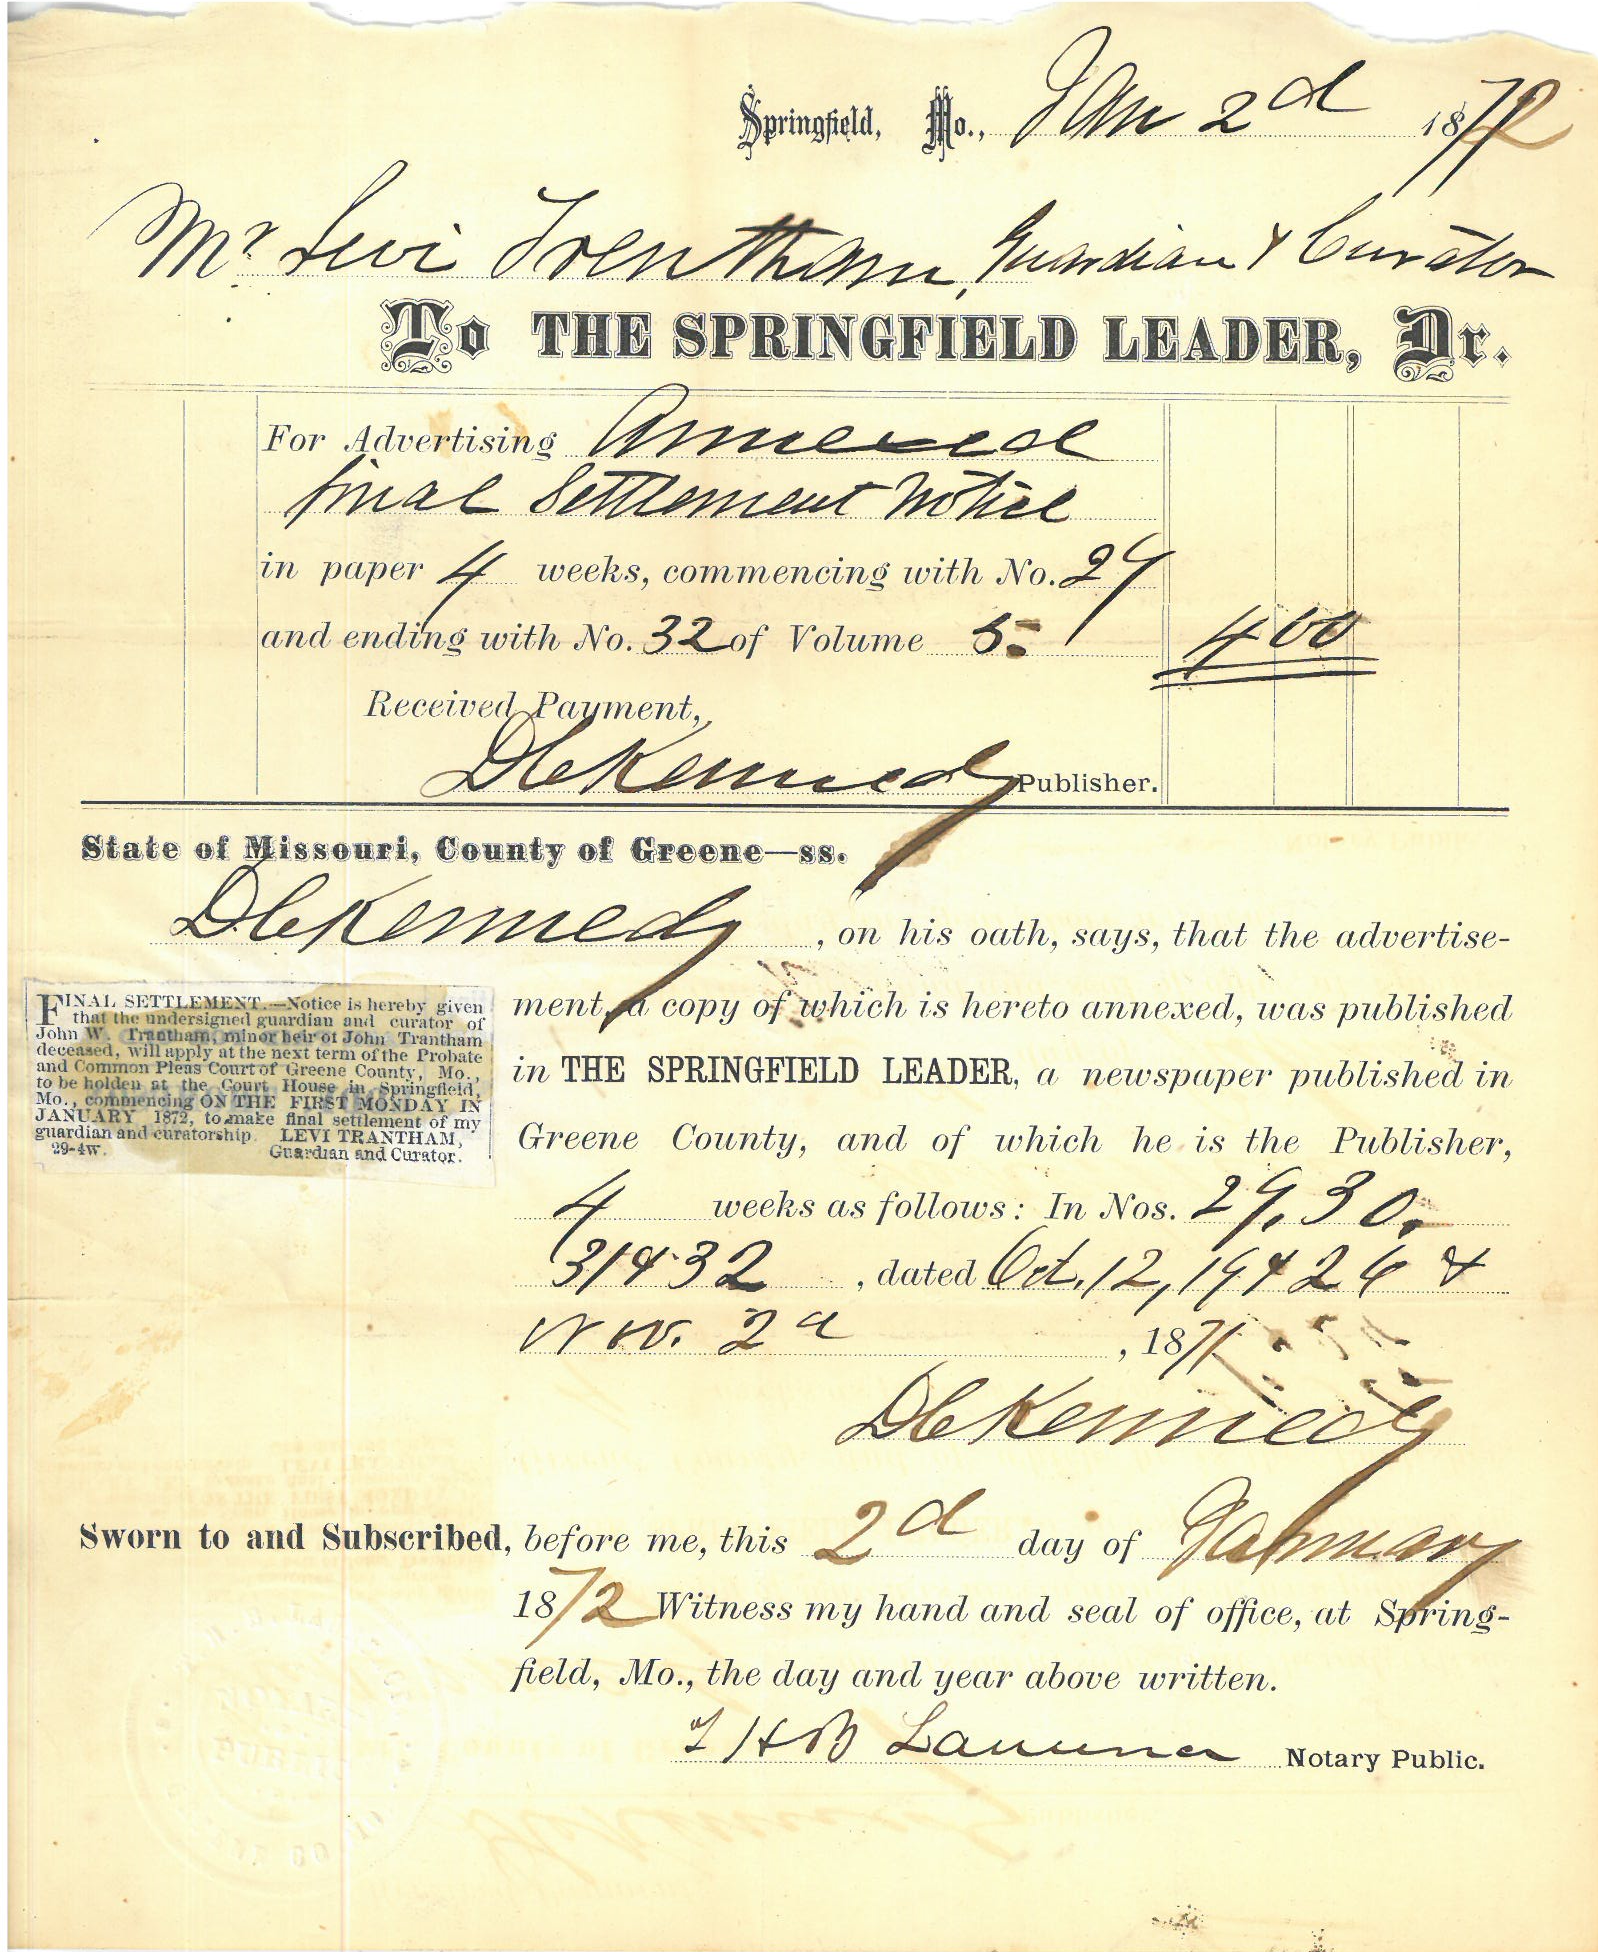 Springfield, Mo., Jan 2d 1872
Mr. Levi Trentham, Guardian & Curator
To THE SPRINGFIELD LEADER, Dr.
For Advertising Annexed
final Settlement Notice
in paper 4 weeks, commencing with No. 29
and ending with No. 32 of Volume 5. 4 00
Received Payment,
D C Kennedy Publisher.
State of Missouri, County of Greene—ss.
D C Kennedy, on his oath, says, that the advertise-
ment, a copy of which is hereto annexed, was published
in THE SPRINGFIELD LEADER, a newspaper published in
Greene County, and of which he is the Publisher,
4 weeks as follows: In Nos. 29, 30,
31 & 32, dated Oct. 12, 19 & 26 &
Nov. 2d, 1871
D C Kennedy
FINAL SETTLEMENT.—Notice is hereby given
that the undersigned guardian and curator of
John W. Trantham, minor heir of John Trantham
deceased, will apply at the next term of the Probate
and Common Pleas Court of Greene County, Mo.,
to be holden at the Court House in Springfield,
Mo., commencing ON THE FIRST MONDAY IN
JANUARY 1872, to make final settlement of my
guardian and curatorship. LEVI TRANTHAM,
29-4w. Guardian and Curator.
Sworn to and Subscribed, before me, this 2d day of January
1872 Witness my hand and seal of office, at Spring-
field, Mo., the day and year above written.
Notary Public.